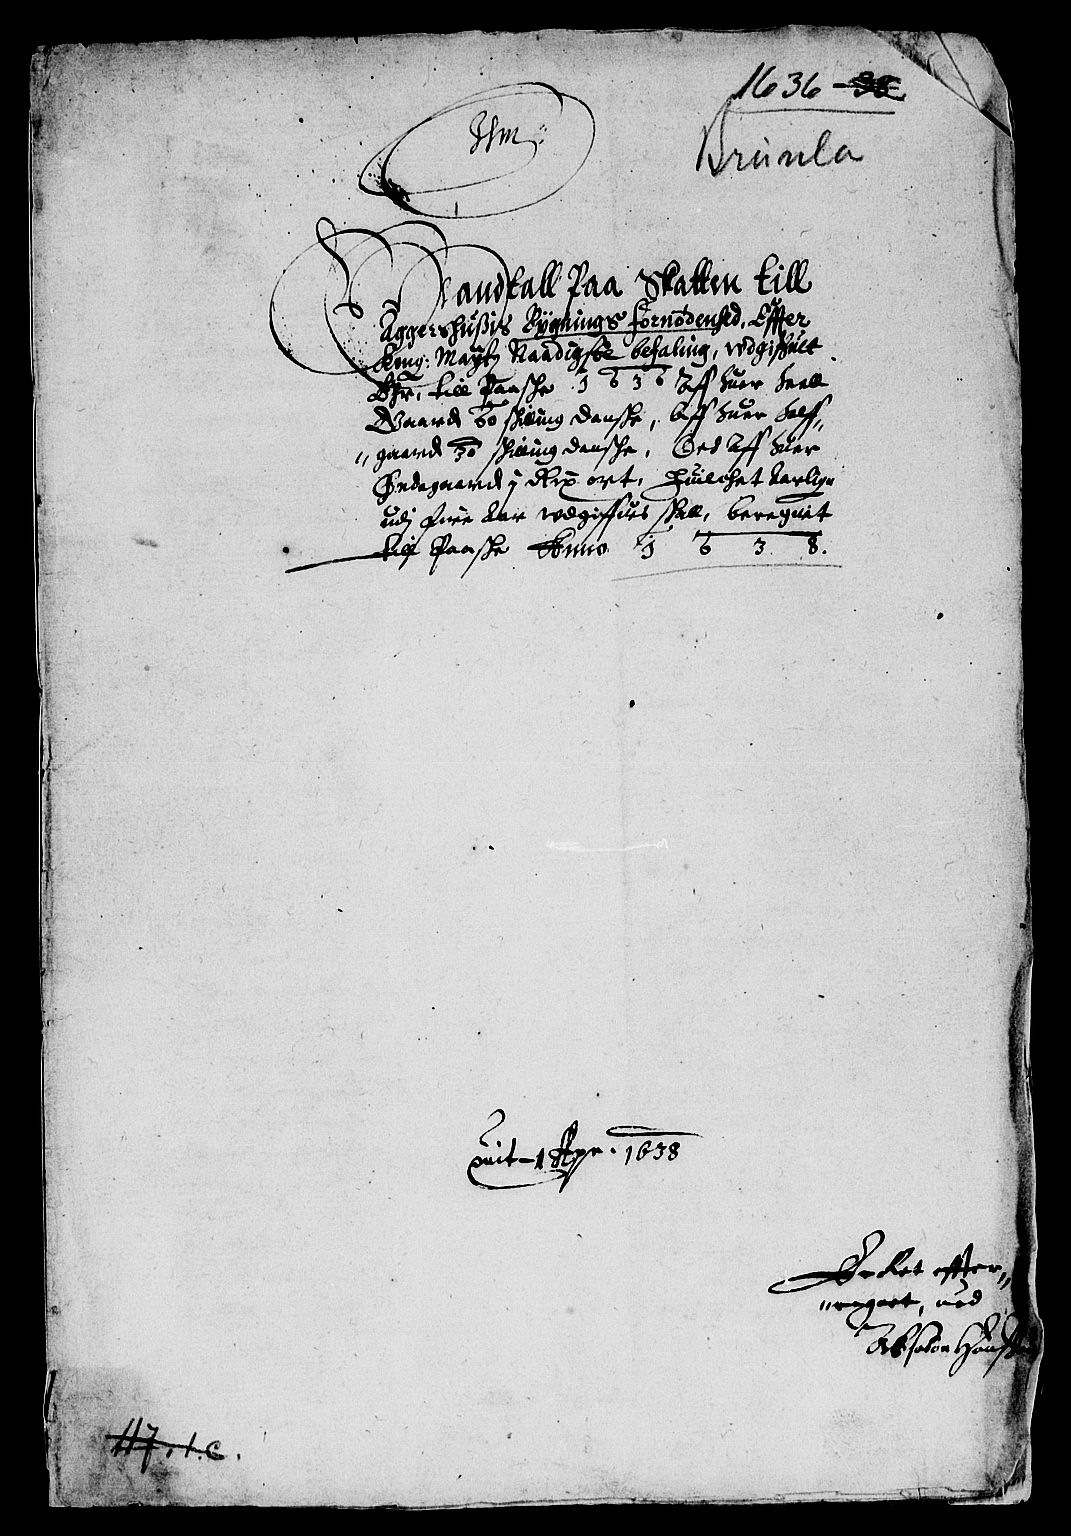 1636 - 38
Brunla
Mandtall Paa Skatten till
Aggershußis Bÿgnings fornødenhed, Effter
Kong: Maytz Naadigste befaling, wdgifuet
till Paaske 1636 Aff huer heell
Gaard 60 skilling danske, Aff huer halff„
„gaard 30 skilling danske, Och Aff huer
Ødegaard j Rix ort, huilchet Aarligen
udj Aar wdgiffues skall, beregnit
till Paaske Anno 1638.
qvit - 1 Apr. 1638
effter„
„regnet, ved
Absalon
117. 1. c.